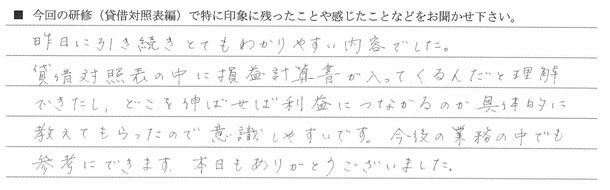 ■ 今回の研修（貸借対照表編）で特に印象に残ったことや感じたことなどをお聞かせ下さい。
昨日に引き続きとてもわかりやすい内容でした。
貸借対照表の中に損益計算書が入ってくるんだと理解
できたし、どこを伸ばせば利益につながるのか具体的に
教えてもらったので意識しやすいです。今後の業務の中でも
参考にできます。本日もありがとうございました。